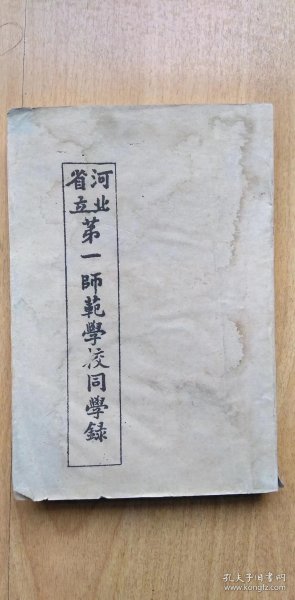 河北省立第一師範學校同學録
孔夫子旧书网